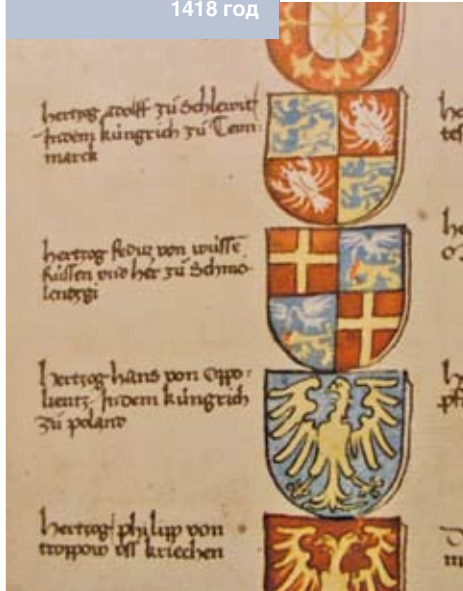 1418 год
hertzog adolff zu Schlewit
Indem küngrich zu Tenn:
marck
hertzog von wisse
Rüssen vnd her zu Schmo-
lentzgi
hertzog hans von Oppo:
lientz Indem küngrich
zu poland
hertzog philipp von
troppow vss kriechen